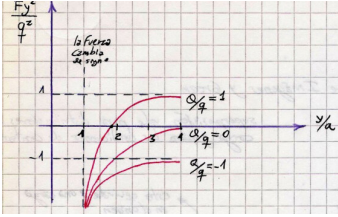 Fy²
q²
la fuerza
cambia
de signo
1
Q/q = 1
1 2 3 4
y/a
Q/q = 0
-1
Q/q = -1